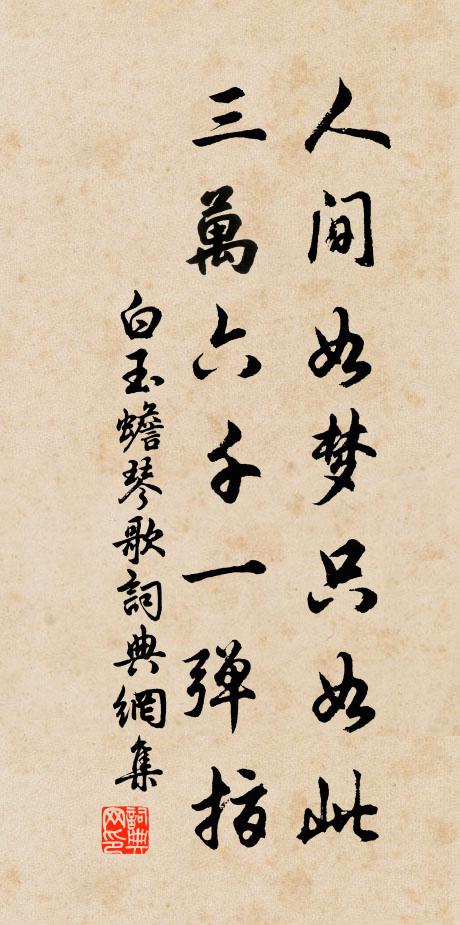 人间如梦只如此
三萬六千一弹指
白玉蟾琴歌詞典網集
詞典网印